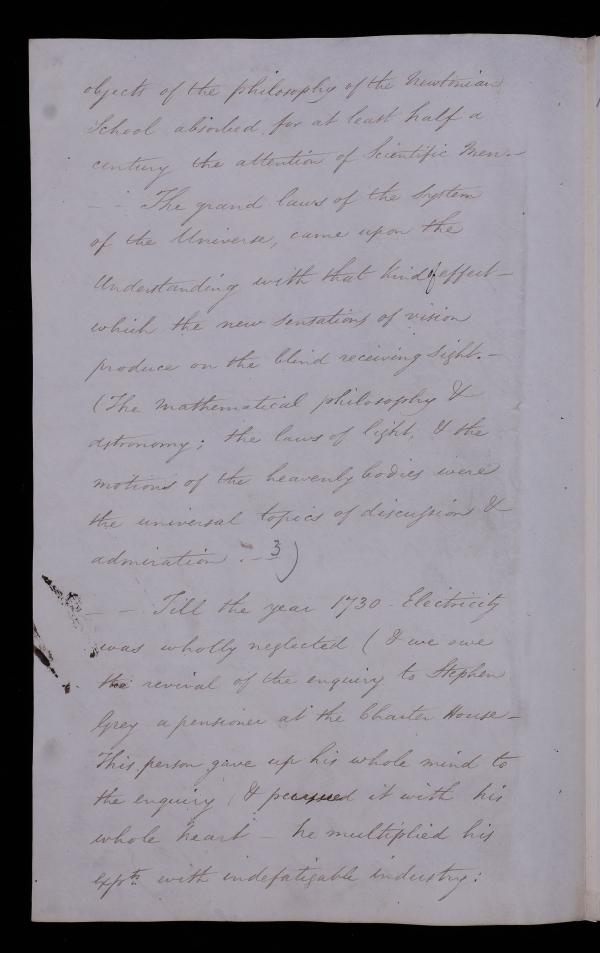 objects of the philosophy of the Newtonian
School absorbed for at least half a
century the attention of Scientific Men. -
- - The grand laws of the System
of the Universe, came upon the
Understanding with that kind of effect -
which the new sensations of vision
produce on the blind receiving Sight. -
(The mathematical philosophy &
astronomy; the laws of light, & the
motions of the heavenly bodies were
the universal topics of discussion &
admiration. - 3)
- - Till the year 1730 Electricity
was wholly neglected (& we owe
the revival of the enquiry to Stephen
Grey a pensioner at the Charter House -
This person gave up his whole mind to
the enquiry, & pursued it with his
whole heart - he multiplied his
expts with indefatigable industry: